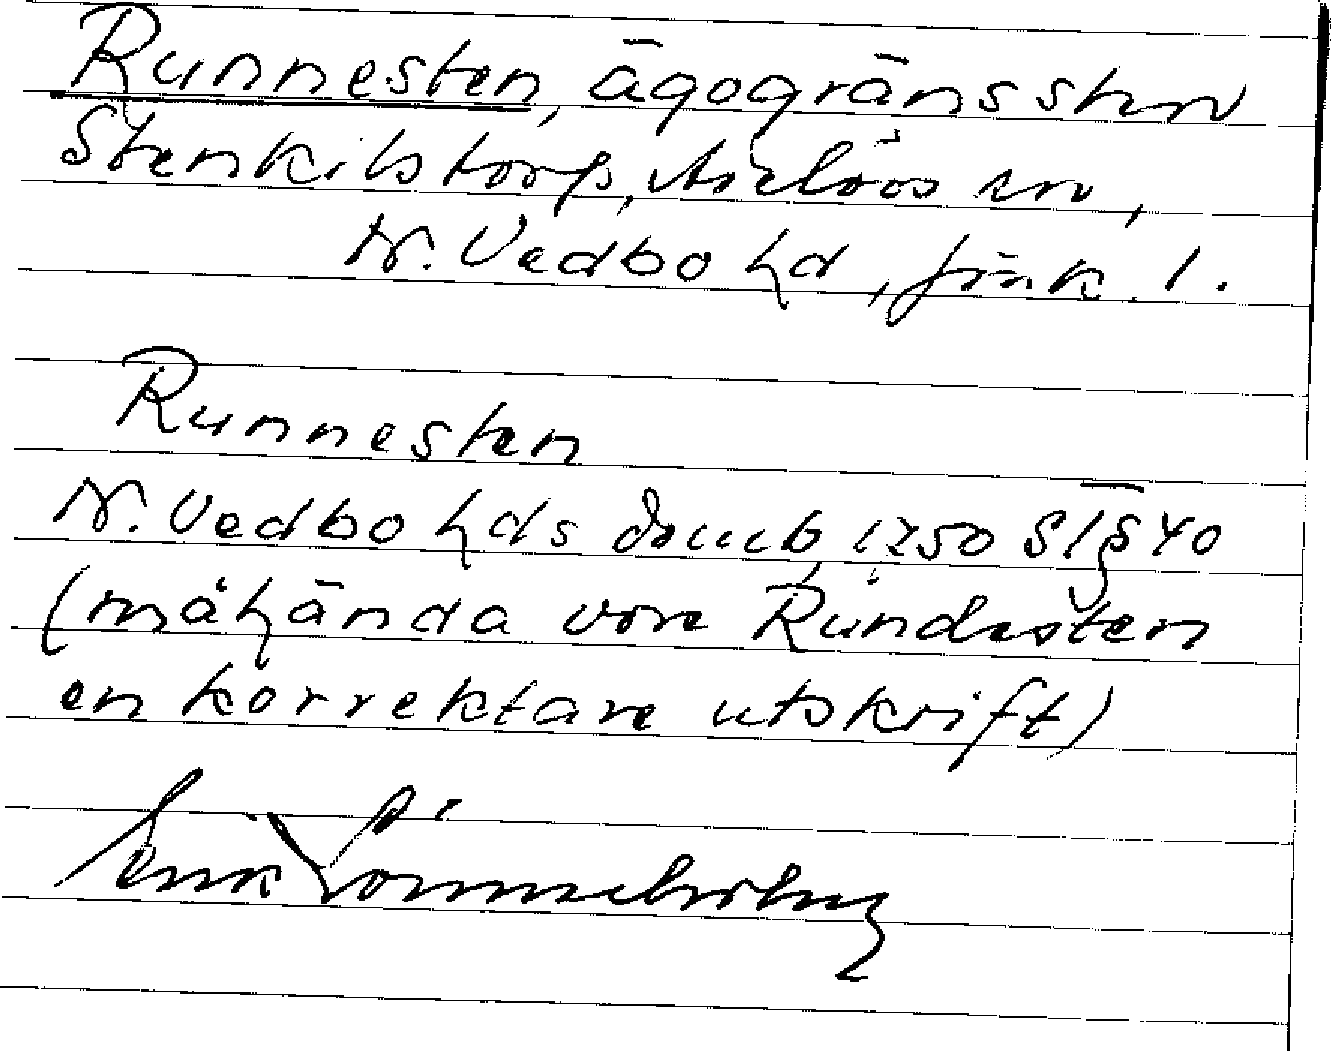 Runnesten, ägogränssten
Stenkilstorp, Askeröds sn,
N. Vedbo hd, Jönk. l.
Runnesten
N. Vedbo hds domb 1750 § 40
(måhända vore Rundesten
en korrektare utskrift)
Erik